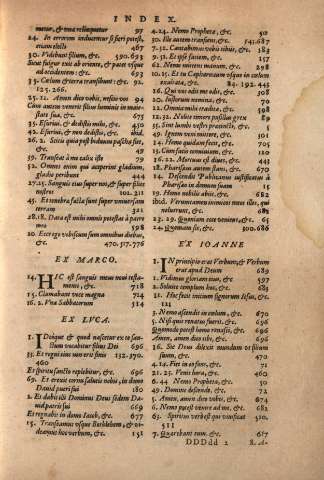 INDEX.
matur, & non relinquetur 97
24. In errorem inducantur si fieri potest,
etiam electi 467
30. Videbunt filium, &c. 590.693
Sicut fulgur exit ab oriente, & paret vsque
ad occidentem : &c. 693
35. Cælum & terra transibunt: &c. 92
125.266.
25. 12. Amen dico vobis, nescio vos 94
Cùm autem venerit filius hominis in maie-
state sua, &c. 675
35. Esuriui, & dedistis mihi, &c. 450
42. Esuriui, & non dedistis, &c. ibid.
26. 2. Scitis quia post biduum pascha fiet,
&c. 649
39. Transeat à me calix iste 79
52. Omnes enim qui acceperint gladium,
gladio peribunt 444
27.25. Sanguis eius super nos, & super filios
nostros 101.211
45. Et tenebræ factæ sunt super vniuersam
terram 321
28.18. Data est mihi omnis potestas à patre
meo 598
20. Ecce ego vobiscum sum omnibus diebus,
&c. 470.517.776
EX MARCO.
14. HIC est sanguis meus noui testa-
menti, &c. 718
15. Clamabant voce magna 714
16. 2. Vna Sabbatorum 514
EX LVCA.
1. Ideoque & quod nascetur ex te san-
ctum vocabitur filius Dei 696
33. Et regni eius non erit finis 132.370.
460
Et spiritu sancto replebitur, &c. 696
69. Et erexit cornu salutis nobis, in domo
Dauid pueri sui 180
2. Et dabit illi Dominus Deus sedem Da-
uid patris sui 669
Et regnabit in domo Iacob, &c. 677
15. Transeamus vsque Bethlehem, & vi-
deamus hoc verbum, &c. 151
4.24. Nemo Propheta, &c. 50
30. Ille autem transiens, &c. 541.687
7.32. Cantabimus vobis tibiis, &c. 184
9. 31. Et esse faciem, &c. 157
62. Nemo mittens manum, &c. 298
10.15. Et tu Capharnaum vsque in cœlum
exaltata, &c. 84.192.445
16. Qui vos odit me odit, &c. 508
20. Iustorum nomina, &c. 70
12. Omnia munda erunt, &c. 598
12. 32. Nolite timere pusillus grex 89
35. Sint lumbi vestri præcincti, &c. 5
49. Ignem veni mittere, &c. 501
14. Homo quidam fecit, &c. 705
23. Cum facis conuiuium, &c. 110
16. 22. Mortuus est diues, &c. 445
18. Pharisæus autem stans, &c. 670
14. Descendit Publicanus iustificatus à
Pharisæo in domum suam 15
19. Homo nobilis abiit, &c. 682
ibid. Veruntamen inimicos meos illos, qui
noluerunt, &c. 682
23. 29. Quoniam ecce venient, &c. 65
24.44. Quoniam sic, &c. 500.686
EX IOANNE
1. IN principio erat Verbum, & Verbum
erat apud Deum 689
1. Vidimus gloriam eius, &c. 597
2. Soluite templum hoc, &c. 685
21. Hoc fecit initium signorum Iesus, &c.
121
3. Nemo ascendit in cœlum, &c. 670
5. Nisi quis renatus fuerit, &c. 696
Quomodo potest homo renasci, &c. 696
Amen, amen dico tibi, &c. 696
16. Sic Deus dilexit mundum vt filium
suum, &c. 470
4.14. Fiet in eo fons, &c. 71
21. 25. Venit hora, &c. 460
6. 44 Nemo Propheta, &c. 50
49. Domine descende, &c. 72
5. Amen, amen dico vobis, &c. 674
6. Nemo potest venire ad me, &c. 682
63. Spiritus verbi est qui viuificat 500.
511
7. Quærebant eum, &c. 617
DDDdd 2 8. A-